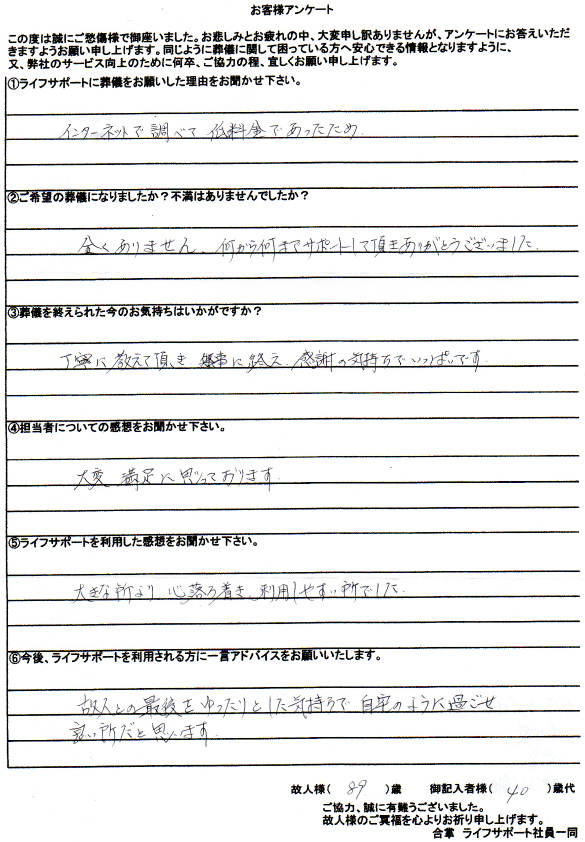 お客様アンケート
この度は誠にご愁傷様で御座いました。お悲しみとお疲れの中、大変申し訳ありませんが、アンケートにお答えいただ
きますようお願い申し上げます。同じように葬儀に関して困っている方へ安心できる情報となりますように、
又、弊社のサービス向上のために何卒、ご協力の程、宜しくお願い申し上げます。
①ライフサポートに葬儀をお願いした理由をお聞かせ下さい。
インターネットで調べて低料金であったため
②ご希望の葬儀になりましたか？不満はありませんでしたか？
全くありません、何から何までサポートして頂きありがとうございました.
③葬儀を終えられた今のお気持ちはいかがですか？
丁寧に教えて頂き 無事に終え、感謝の気持ちでいっぱいです.
④担当者についての感想をお聞かせ下さい。
大変満足に思っております.
⑤ライフサポートを利用した感想をお聞かせ下さい。
大きな所より 心落ち着き、利用しやすい所でした.
⑥今後、ライフサポートを利用される方に一言アドバイスをお願いいたします。
故人との最後をゆったりとした気持ちで自宅のように過ごせ
良い所だと思います.
故人様( 89 )歳 御記入者様( 40 )歳代
ご協力、誠に有難うございました。
故人様のご冥福を心よりお祈り申し上げます。
合掌 ライフサポート社員一同